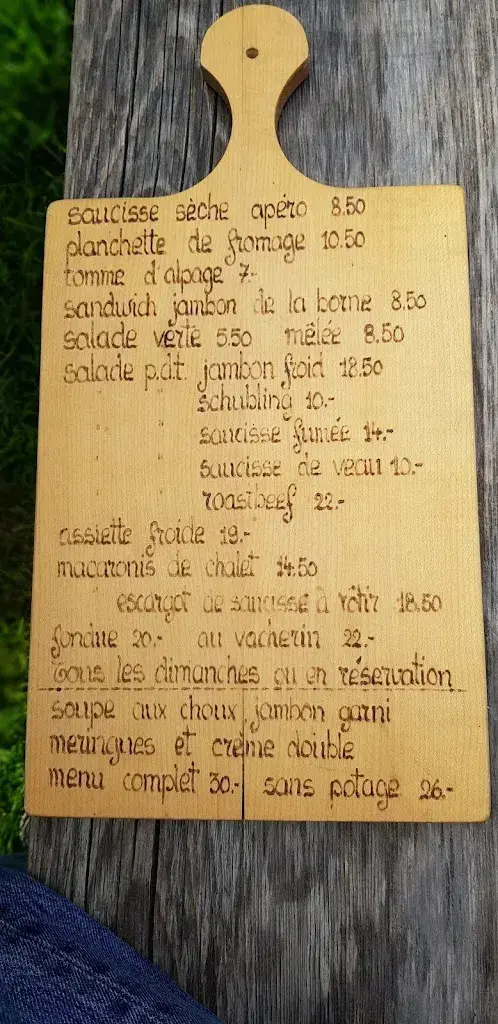 saucisse sèche apéro 8.50
planchette de fromage 10.50
tomme d'alpage 7.-
sandwich jambon de la borne 8.50
salade verte 5.50 mêlée 8.50
salade p.d.t. jambon froid 18.50
schubling 10.-
saucisse fumée 14.-
saucisse de veau 10.-
roastbeef 22.-
assiette froide 19.-
macaronis de chalet 14.50
escargot de saucisse à rôtir 18.50
fondue 20.- au vacherin 22.-
Tous les dimanches ou en réservation
soupe aux choux, jambon garni
meringues et crème double
menu complet 30.- sans potage 26.-